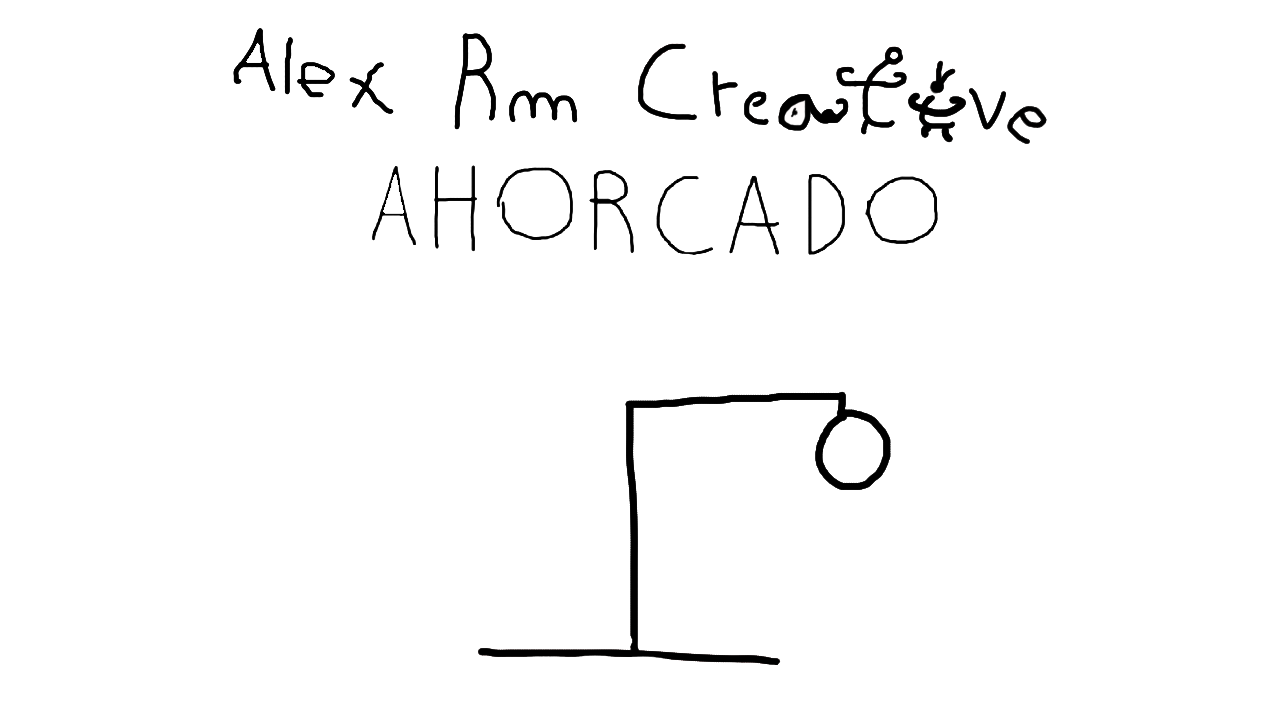 Alex Rm Creative
AHORCADO